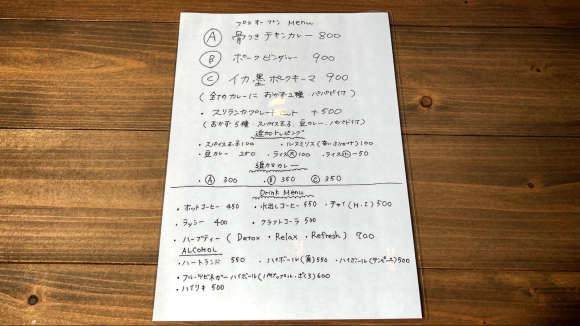 プレオープン Menu
Ⓐ 骨つきチキンカレー 800
Ⓑ ポークビンダルー 900
Ⓒ イカ墨ポークキーマ 900
(全てのカレーに おかず2種・パパド付)
・スリランカプレートセット +500
(おかず5種・スパイス玉子、豆カレー・パパド付)
追加トッピング
・スパイス玉子100 ・ルヌミリス(辛いふりかけ)100
・豆カレー 250 ・ライス(大)100 ・ライス(小)-50
追加カレー
・Ⓐ 300 ・Ⓑ 350 Ⓒ 350
Drink Menu
・ホットコーヒー 450 ・水出しコーヒー 550 ・チャイ(H・I)500
・ラッシー 400 ・クラフトコーラ 500
・ハーブティー (Detox ・Relax ・Refresh) 700
ALCOHOL
・ハートランド 550 ・ハイボール(角)550 ・ハイボール(サンピース)500
・フルーツビネガーハイボール(パイナップル・ざくろ)600
・ハイリキ 500